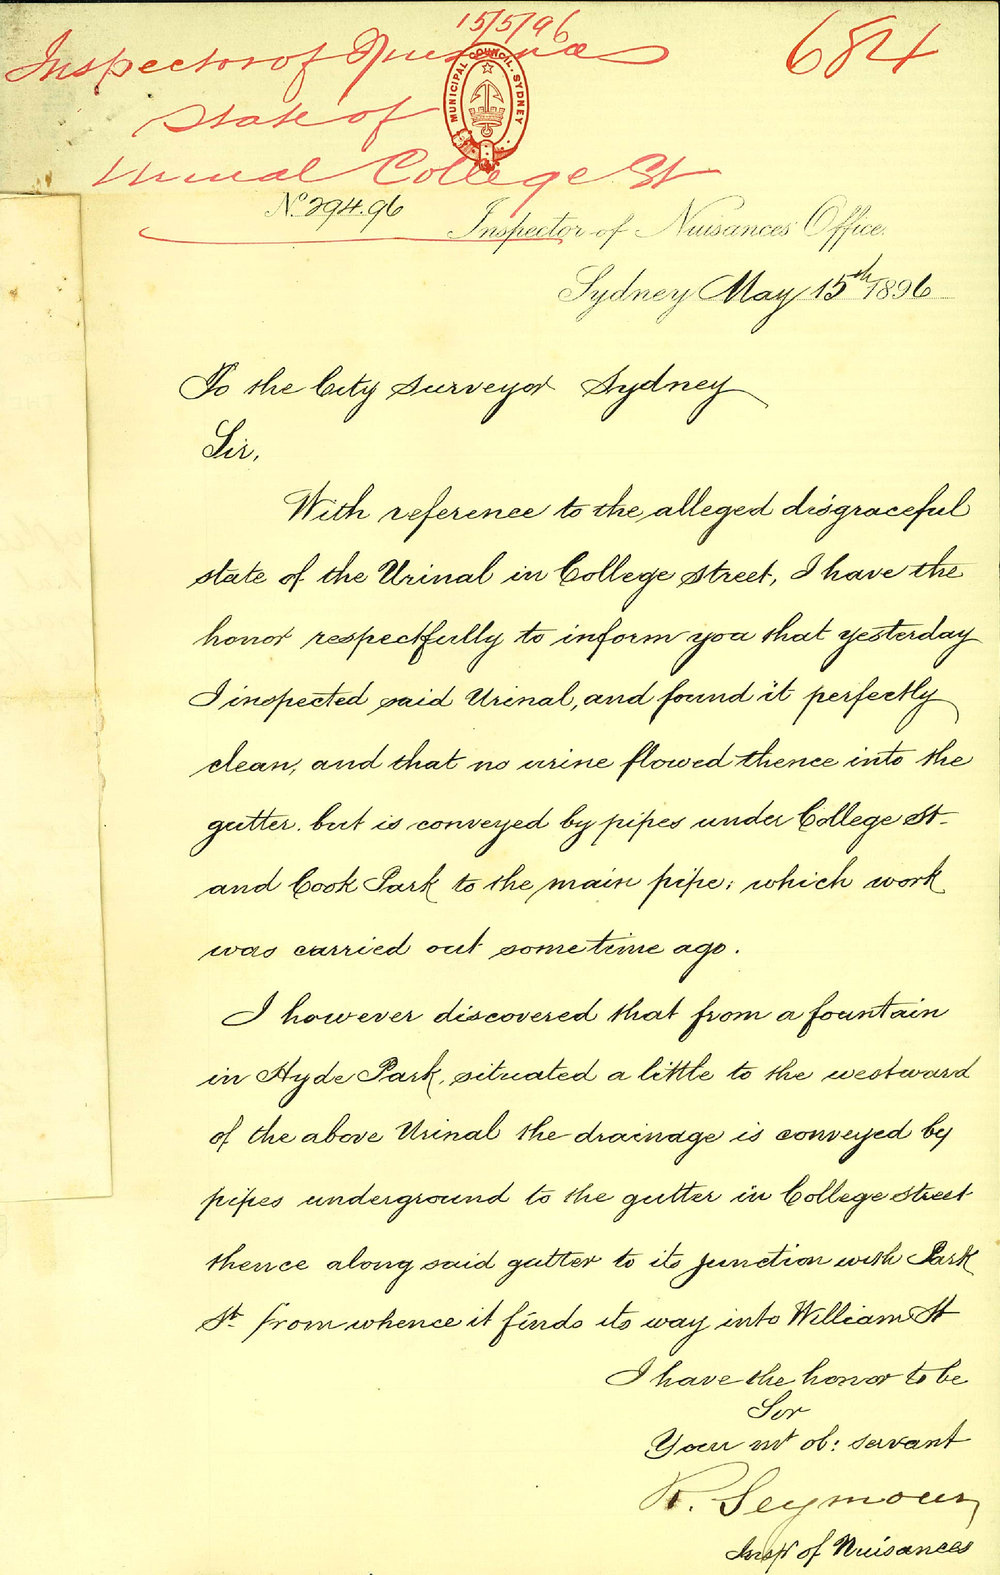 15/5/96
684
Inspector of Nuisances
State of
Urinal College St
MUNICIPAL COUNCIL. SYDNEY
No. 294.96
Inspector of Nuisances Office.
Sydney May 15th 1896
To the City Surveyor Sydney
Sir,
With reference to the alleged disgraceful
state of the Urinal in College Street, I have the
honor respectfully to inform you that yesterday
I inspected said Urinal, and found it perfectly
clean, and that no urine flowed thence into the
gutter. but is conveyed by pipes under College St.
and Cook Park to the main pipe; which work
was carried out some time ago.
I however discovered that from a fountain
in Hyde Park, situated a little to the westward
of the above Urinal the drainage is conveyed by
pipes underground to the gutter in College Street
thence along said gutter to its junction with Park
St. from whence it finds its way into William St
I have the honor to be
Sir
Your mt ob: servant
R. Seymour
Inspr of Nuisances